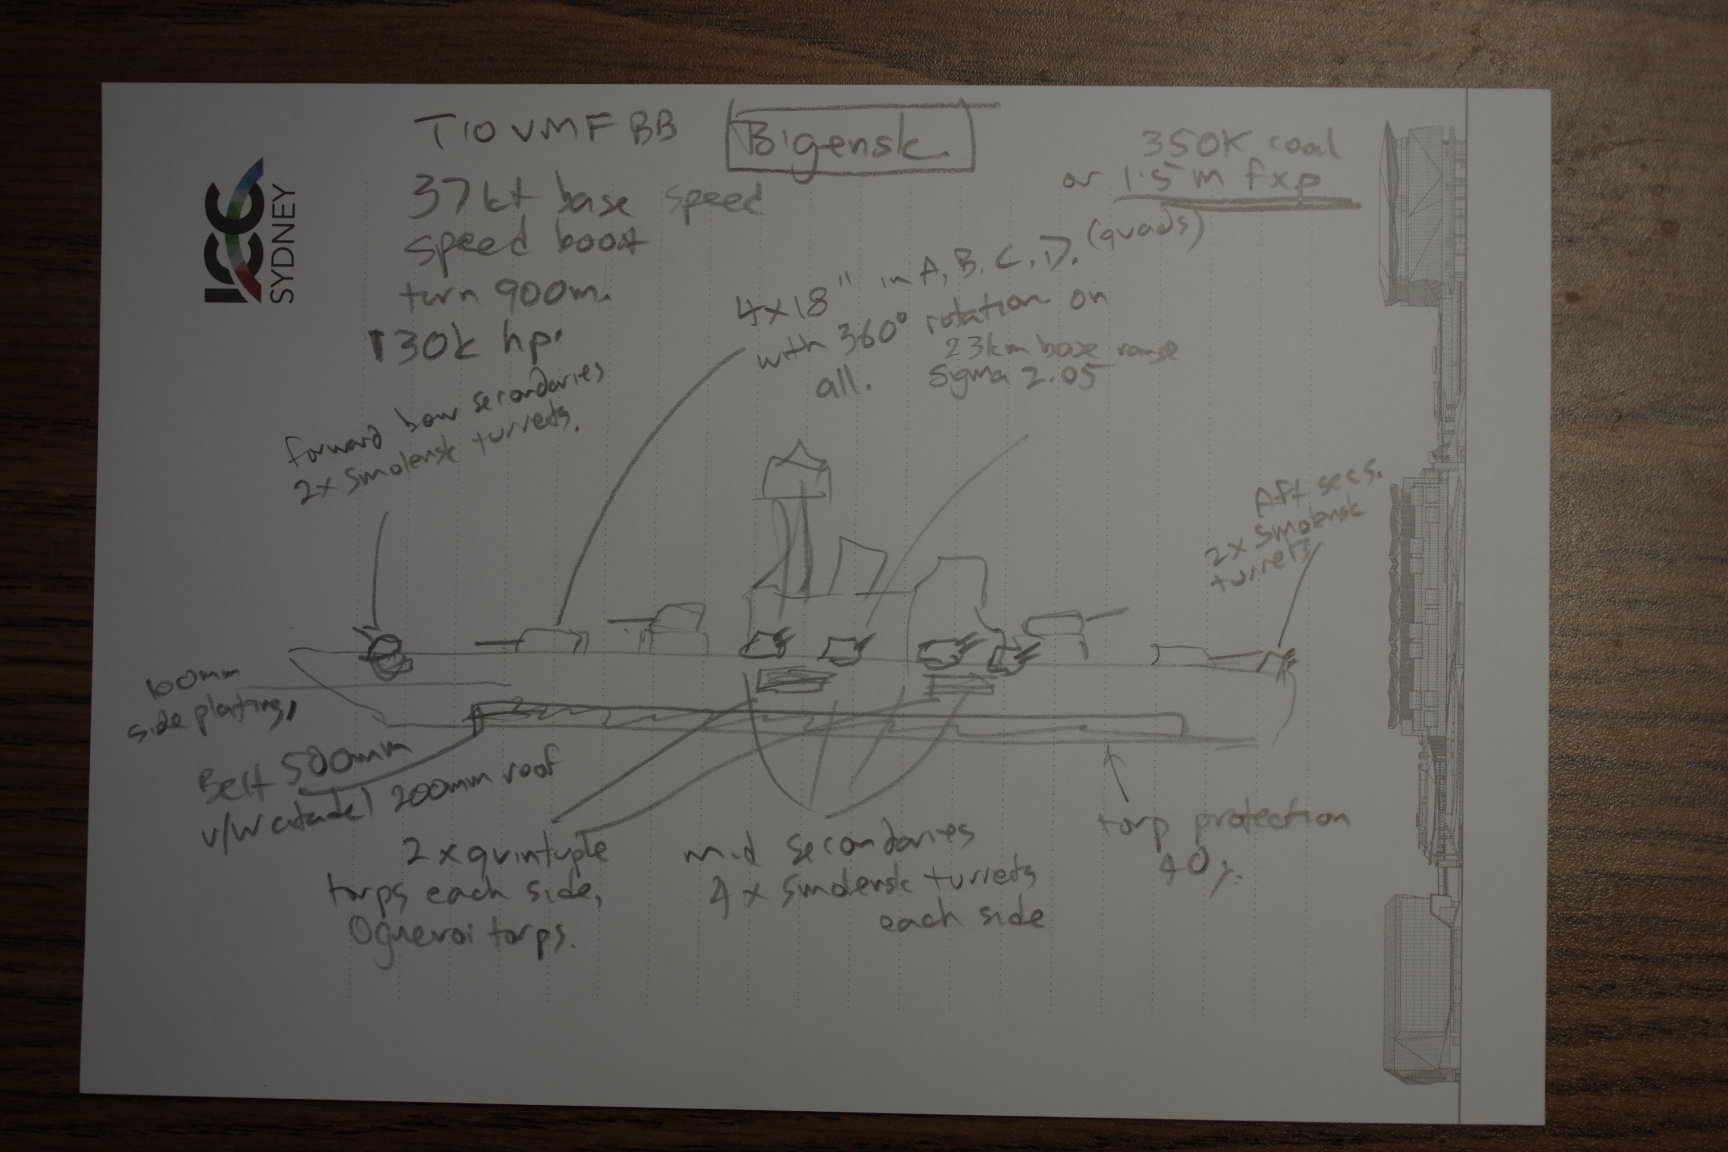 ICC
SYDNEY
T10 VMF BB
Bigensk.
350K coal
or 1.5m fxp
37kt base speed
speed boost
turn 900m.
130k hp.
4x18" in A, B, C, D. (quads)
with 360° rotation on
all.
23km base range
Sigma 2.05
forward bow secondaries
2x Smolensk turrets.
Aft secs.
2x Smolensk
turrets
100mm
side plating,
Belt 500mm
v/w citadel 200mm roof
2 x quintuple
torps each side,
Ognevoi torps.
mid secondaries
4x Smolensk turrets
each side
torp protection
40%.